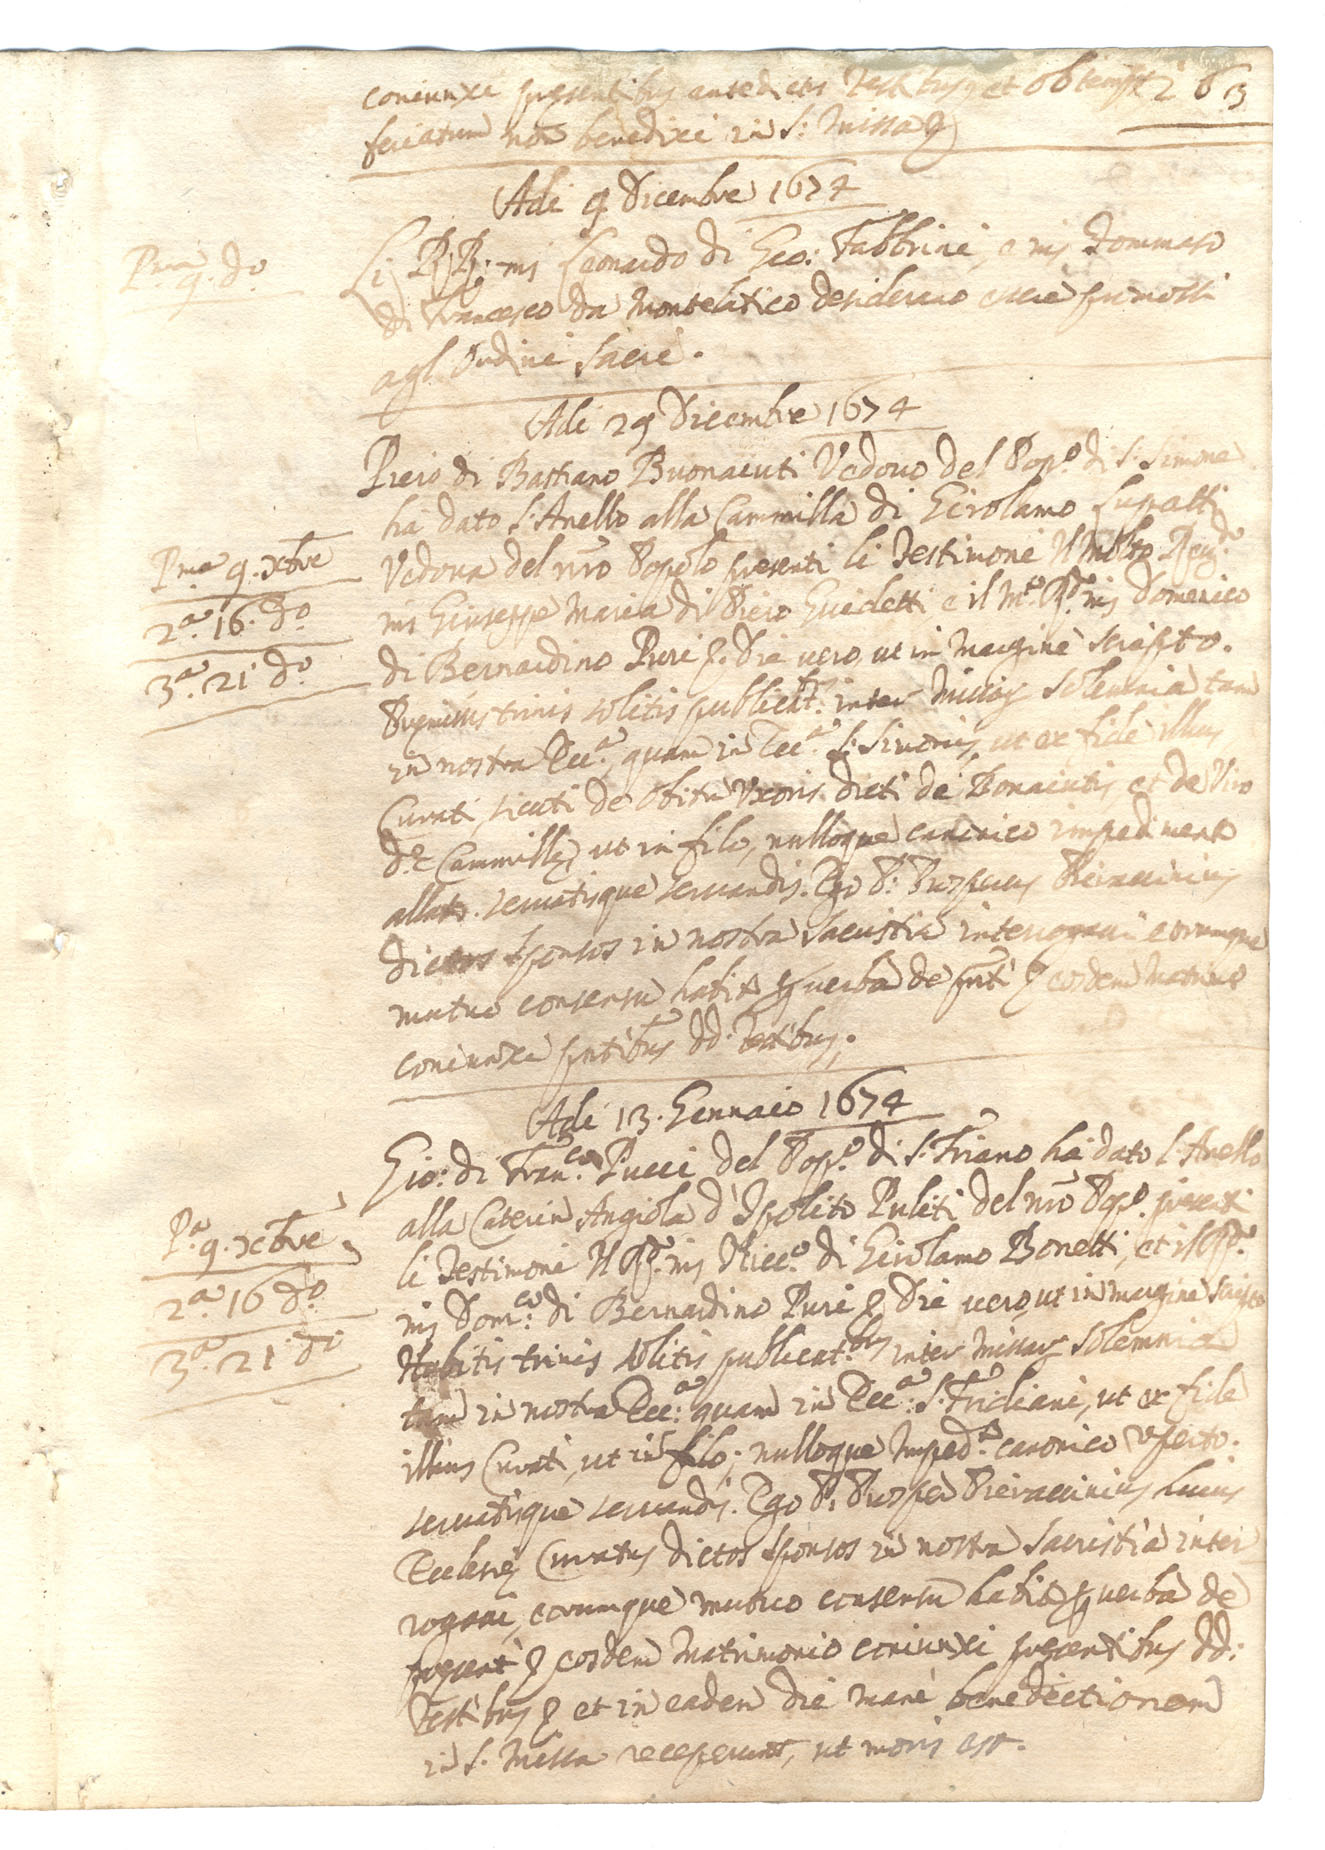 coniunxi presentibus antedictis Testibus, et ob temp. 263
feriatum non benedixi in S: Missa
Adi 9 Dicembre 1674
Pma 9. do
Li RR: mi Leonardo di Gio: Fabbrini, e mi Tommaso
di Francesco da Montelatico desiderano essere promossi
agl'Ordini Sacri.
Adi 29 Dicembre 1674
Piero di Bastiano Buonaiuti Vedovo del Popo. di S: Simone
ha dato l'Anello alla Cammilla di Girolamo
Pma 9. xbre
Vedova del nro Popolo presenti li Testimoni Il Molto Revdo
2a. 16. do
mi Giuseppe Maria di Piero Guidetti e il mi Domenico
3a. 21 do
di Bernardino Puri Die vero, ut in margine scripto.
trinis solitis publicat. inter Missar solemnia tam
in nostra Ecca. quam in Ecca. S: Simonis, ut ex fide illius
Curati, sicuti de obitu Uxoris dicti de Bonaiutis et de Viro
de Cammille, ut in filo, nulloque canonico impedimento
allato. servatisque servandis. Ego P: Prosper Pieraccinius
dictos sponsos in nostra sacristia interrogavi eorumque
mutuo consensu habito p verba de pnti eosdem Matrim
coniunxi pntibus dd. Testibus.
Adi 13. Gennaio 1674
Gio: di Franco. Pucci del Popo. di S: Friano ha dato l'Anello
alla Caterina Angiola d'Ipolito Puliti del nro Popo. presenti
Pa. 9. xbre
li Testimoni Il mi Nicco. di Girolamo Bonetti, et il
2a. 16 do
mi Domco. di Bernardino Puri Die vero, ut in margine
3a. 21 do
Habitis trinis solitis publicat.bus inter Missar solemnia
tam in nostra Ecca: quam in Ecca: S: Fridiani, ut ex fide
illius Curati, ut in filo, nulloque Imped.to canonico
servatisque servandis. Ego P: Prosper Pieraccinius huius
Ecclesie Curatus dictos sponsos in nostra Sacristia inter
rogavi, eorumque mutuo consensu habito p verba de
presenti eosdem Matrimonio coniunxi presentibus dd:
Testibus et in eadem die mane benedictionem
in S. Missa receperunt, ut moris est.